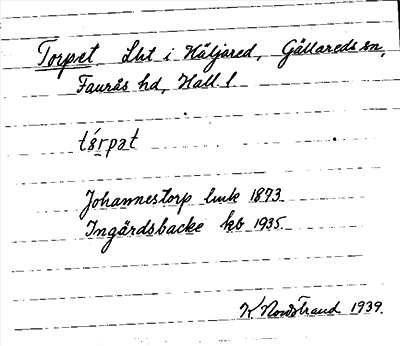 Torpet Lht i Häljared, Gällareds sn,
Faurås hd, Hall. l
Johannestorp lmk 1873.
Ingärdsbacke kb 1935.
K Nordstrand 1939.